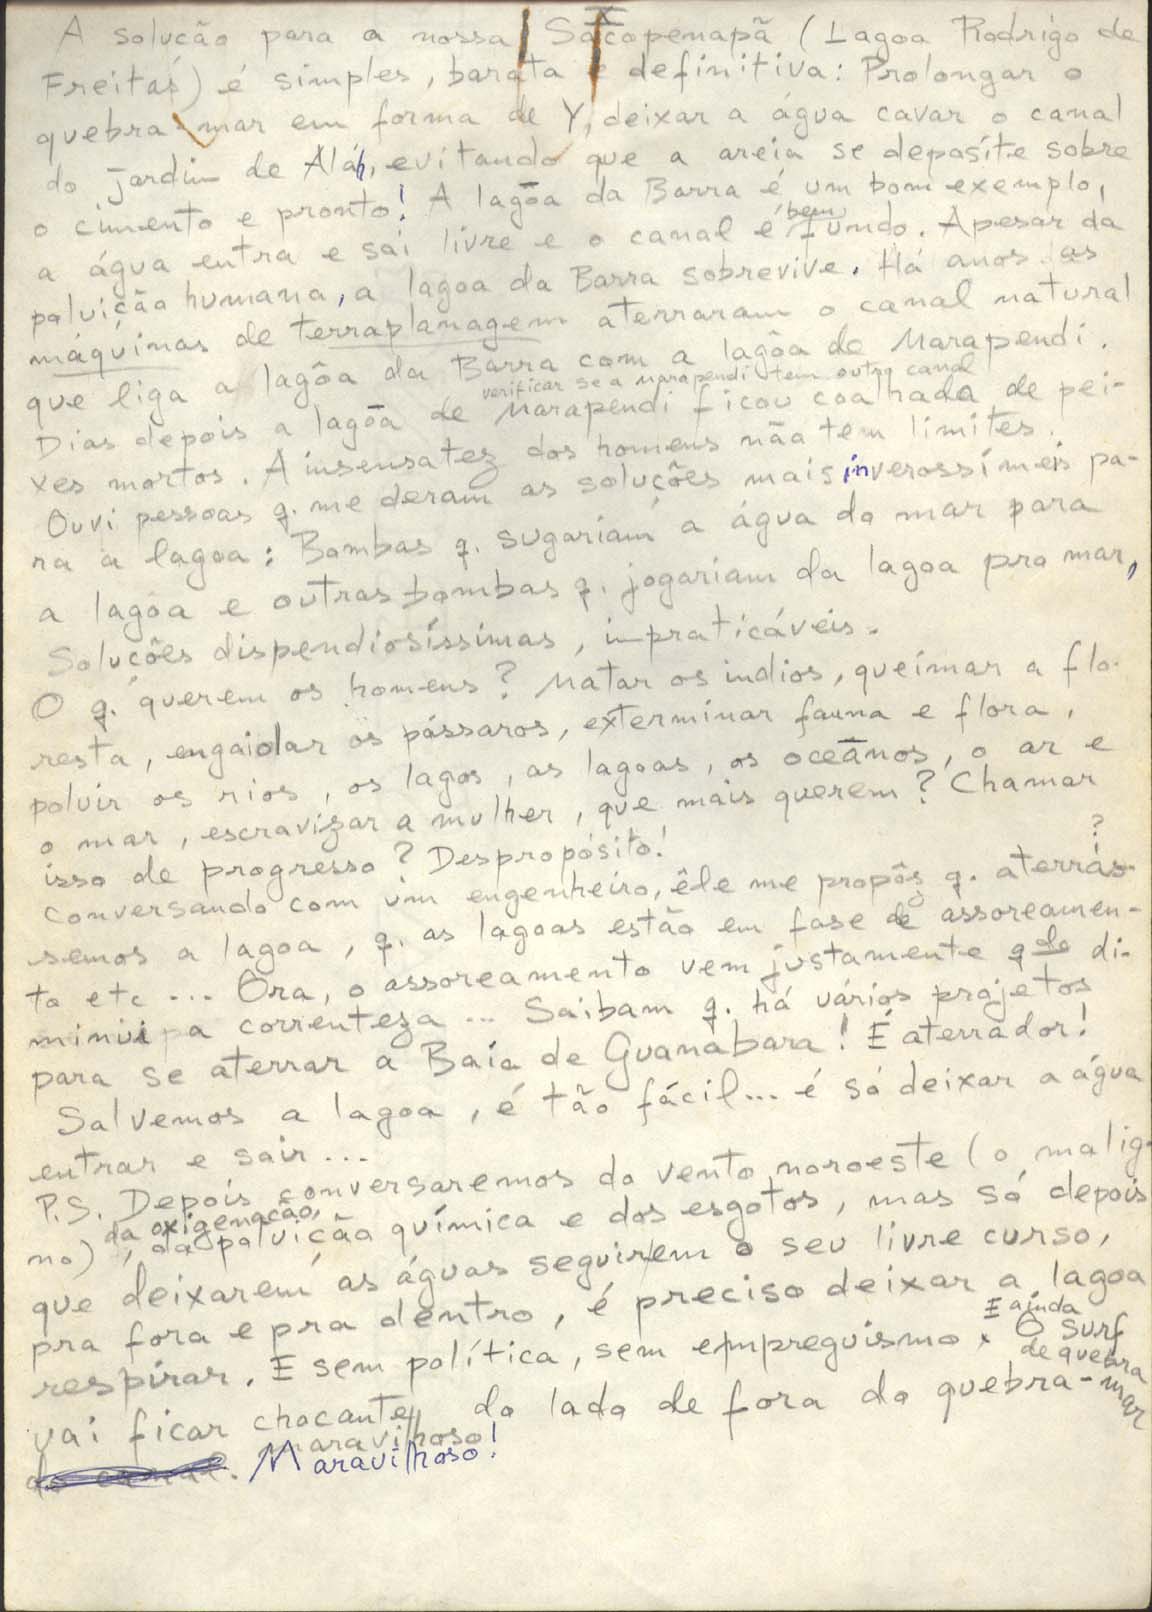 X
A solucão para a nossa Sacopenapã (Lagoa Rodrigo de
Freitas) é simples, barata e definitiva: Prolongar o
quebra-mar em forma de Y, deixar a água cavar o canal
do jardim de Aláh, evitando que a areia se deposite sobre
o cimento e pronto! A lagôa da Barra é um bom exemplo,
a água entra e sai livre e o canal é bem fundo. Apesar da
poluição humana, a lagoa da Barra sobrevive. Há anos as
máquinas de terraplanagem aterraram o canal natural
que liga a lagôa da Barra com a lagôa de Marapendi.
verificar se a marapendi tem outro canal
Dias depois a lagôa de Marapendi ficou coalhada de pei-
xes mortos. A insensatez dos homens não tem limites.
Ouvi pessoas q. me deram as soluções mais inverossímeis pa-
ra a lagoa: Bombas q. sugariam a água do mar para
a lagôa e outras bombas q. jogariam da lagoa pro mar,
Soluções dispendiosíssimas, impraticáveis.
O q. querem os homens? Matar os indios, queimar a flo-
resta, engaiolar os pássaros, exterminar fauna e flora,
poluir os rios, os lagos, as lagoas, os oceânos, o ar e
o mar, escravizar a mulher, que mais querem? Chamar
isso de progresso? Despropósito!
?
conversando com um engenheiro, êle me propôs q. aterrás-
semos a lagoa, q. as lagoas estão em fase de assoreamen-
to etc ... Ora, o assoreamento vem justamente qdo di-
minui a correnteza ... Saibam q. há vários projetos
para se aterrar a Baía de Guanabara! É aterrador!
Salvemos a lagoa, é tão fácil... é só deixar a água
entrar e sair ...
P.S. Depois conversaremos do vento noroeste (o malig-
da oxigenação,
no), da poluição química e dos esgotos, mas só depois
que deixarem as águas seguirem o seu livre curso,
pra fora e pra dentro, é preciso deixar a lagoa
respirar. E sem política, sem empreguismo. E ainda O surf
de quebra-mar
vai ficar chocante, do lado de fora do quebra-
maravilhoso!
do canal. Maravilhoso!